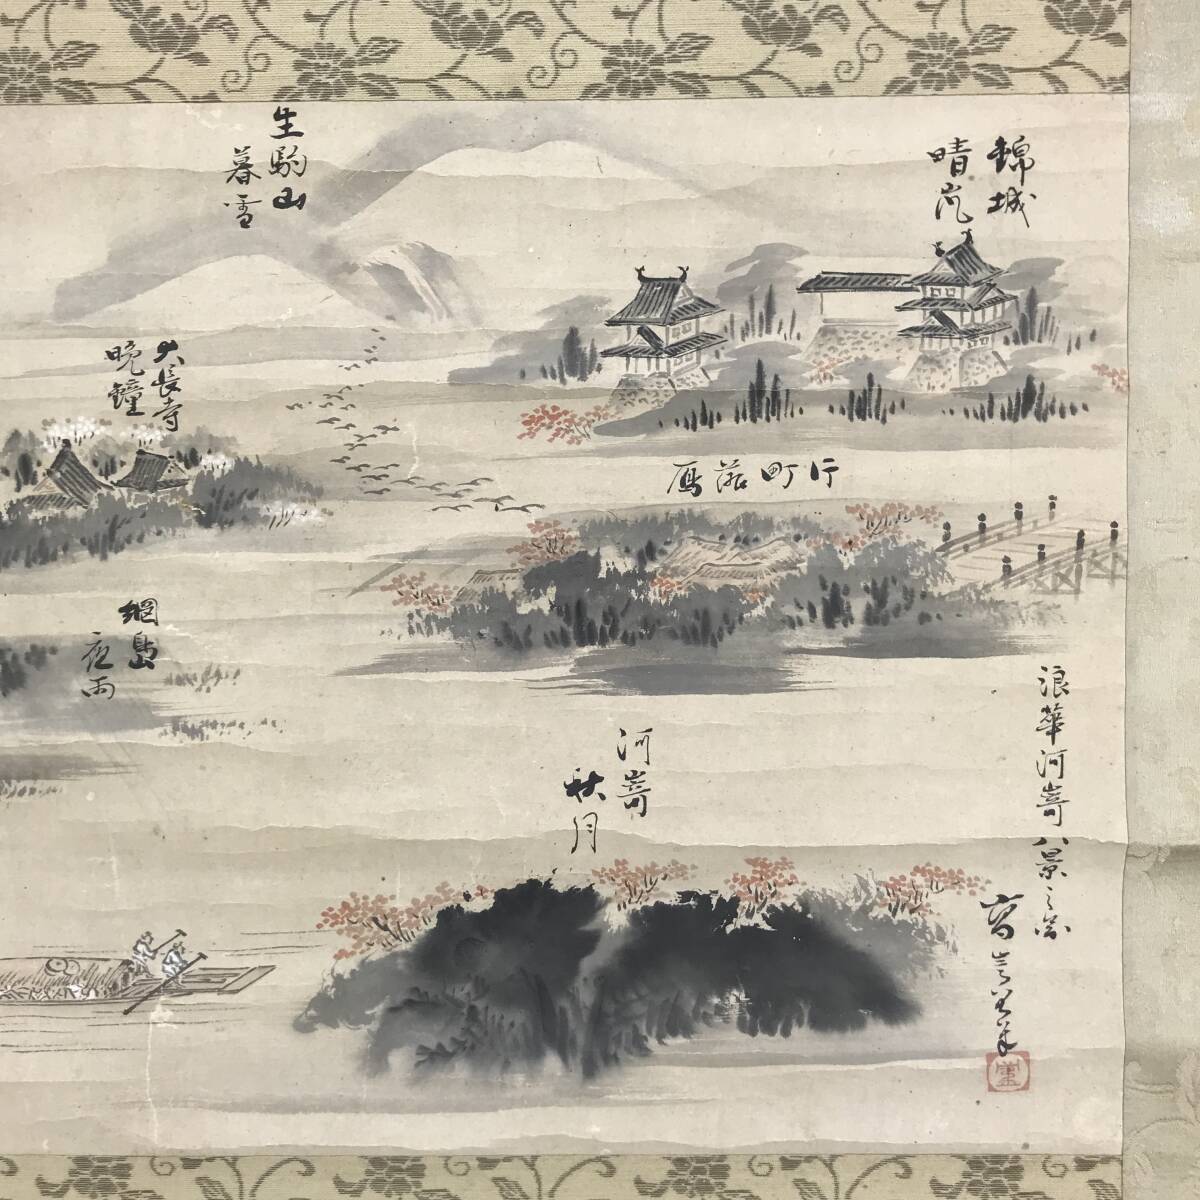 浪華河嵜八景之図
錦城
晴嵐
生駒山
暮雪
大長寺
晩鐘
行町落鴈
網島
夜雨
河嵜
秋月